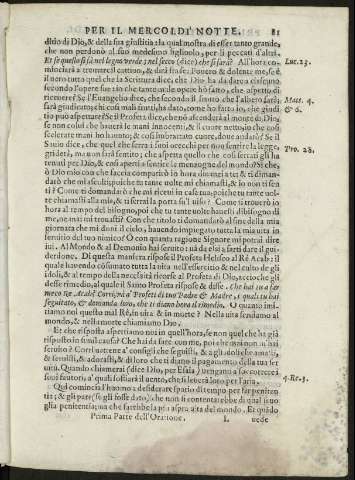 PER IL MERCOLDI NOTTE. 81
ditio di Dio, & della sua giustitia: la qual mostra di esser tanto grande,
che non perdonò al suo medesimo figliuolo, per li peccati d'altri.
Et se questo si fà nel legno verde; nel secco (dice) che si farà? All'hora co- Luc. 23.
minciarà a tremar il cattiuo, & dirà frà se: Pouero & dolente me, se è
il vero tutto quel che la Scrittura dice, che Dio hà da dare a ciascuno
secondo l'opere sue: io che tante male opere hò fatto, che aspetto di
riceuere? Se l'Euangelio dice, che secondo il frutto che l'albero farà, Mat. 4.
sarà giudicato: chi così mali frutti, hà dato, come hò fatto io, che giudi- & 6.
tio può aspettare? Se il Profeta dice, che nõ ascenderà al monte di Dio,
se non colui che hauerà le mani innocenti, & il cuore netto: io che così
scelerate mani ho hauuto, & così imbrattato cuore, doue andarò? Se il
Sauio dice, che quel che serra i suoi orecchi per non sentire la legge, Pro. 28.
griderà, ma non sarà sentito; che aspetta quello che così serrati gli ha
tenuti per Dio, & così aperti a sentire le menzogne del mondo? Si che,
ò Dio mio con che faccia comparirò io hora dinanzi a te; & ti diman-
darò che mi ascolti, poiche tu tante volte mi chiamasti, & io non ti sen
ti? Come ti domandarò che mi riceui in casa tua, poiche tu tante vol-
te chiamasti alla mia, & ti serrai la porta sul viso? Come ti trouerò io
hora al tempo del bisogno, poi che tu tante volte hauesti di bisogno di
me, ne mai mi trouasti? Con che titolo ti domandarò al fine della mia
giornata che mi doni il cielo, hauendo impiegato tutta la mia vita in
seruitio del tuo nimico? O con quanta ragione Signore mi potrai dire
iui. Al Mondo & al Demonio hai seruito: và da essi a farti dare il gui-
derdone. Di questa maniera rispose il Profeta Heliseo al Rè Acab: il
quale hauendo cósumato tutta la vita nell'essercitio & nel culto de gli
idoli, & al tempo della necessità ricorse al Profeta di Dio, accioche gli
desse rimedio, al quale il Santo Profeta rispose & disse. Che hai tu a far
meco Rè Acab? Corri, và a' Profeti di tuo Padre & Madre, i quali tu hai
seguitato, & domanda loro, che ti diano hora il rimedio. O quanto imi-
tiamo noi questo mal Rè, in vita & in morte? Nella vita seruiamo al
mondo, & nella morte chiamiamo Dio.
Et che risposta aspettiamo noi in quell'hora, se non quel che hà già
risposto in simil causa? Che hai da fare con me, poi che mai non m'hai
seruito? Corri auttene a' consigli che seguisti, & a gli idoli che amasti,
& seruisti, & adorasti, & di loro che ti diano il pagamento della tua ser
uitù. Quando chiamerai (dice Dio, per Esaia) vengano a soccorrerci
i tuoi fautori, a' quali soffiarà il vento, che si leuerà loro per l'aria. 4. Re. 3.
Qui comincia l'huomo a desiderare spatio di tempo per far peniten-
tia; & gli pare (se gli fosse dato) che non si contentarebbe di qual si uo
glia penitentia; ma che farebbe la più aspra uita del mondo. Et quãdo
Prima Parte dell'Oratione. L uede